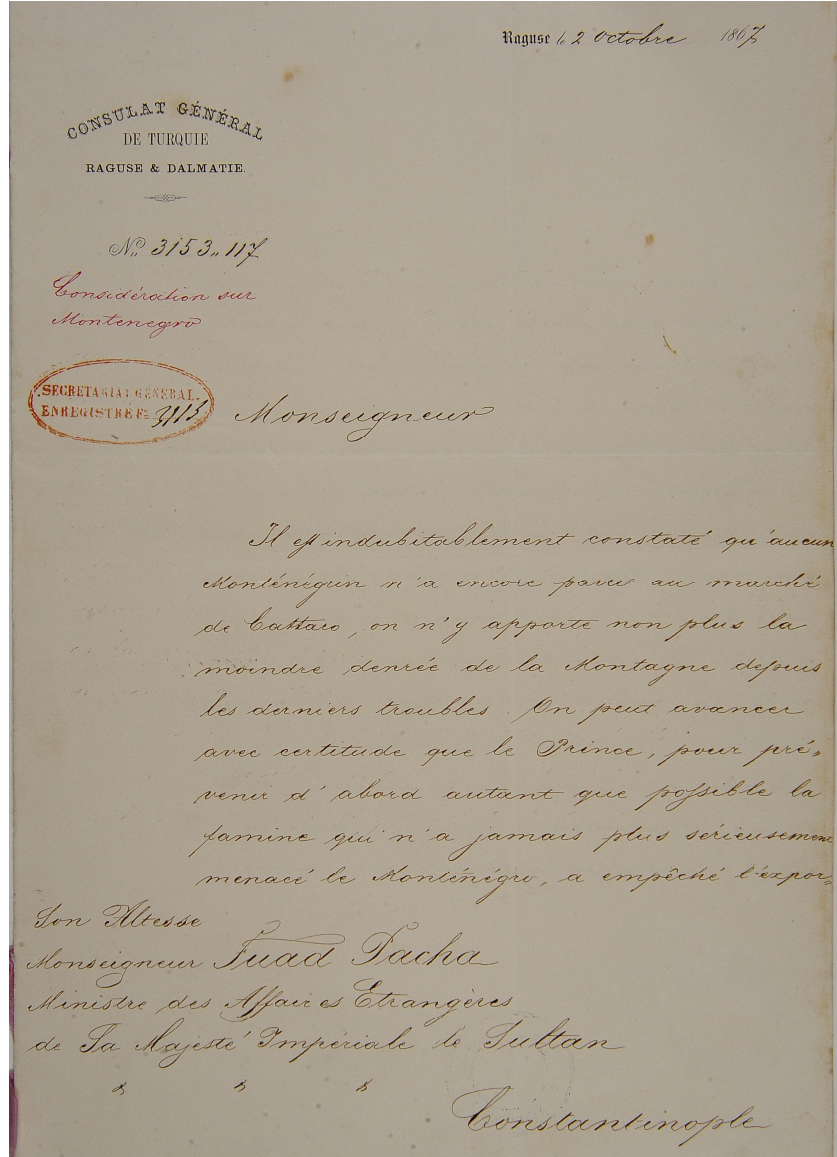 Raguse le 2 Octobre 1867
CONSULAT GÉNÉRAL
DE TURQUIE
RAGUSE & DALMATIE.
No. 3153„117
Considération sur
Montenegro
SECRETARIAT GÉNÉRAL.
ENREGISTRÉ
Monseigneur
Il est indubitablement constaté qu'aucun
Monténégrin n'a encore paru au marché
de Cattaro, on n'y apporte non plus la
moindre denrée de la Montagne depuis
les derniers troubles. On peut avancer
avec certitude que le Prince, pour pré„
venir d'abord autant que possible la
famine qui n'a jamais plus sérieusement
menacé le Monténégro, a empêché l'expor„
Son Altesse
Monseigneur Fuad Pacha
Ministre des Affaires Etrangères
de Sa Majesté Impériale le Sultan
" " "
Constantinople